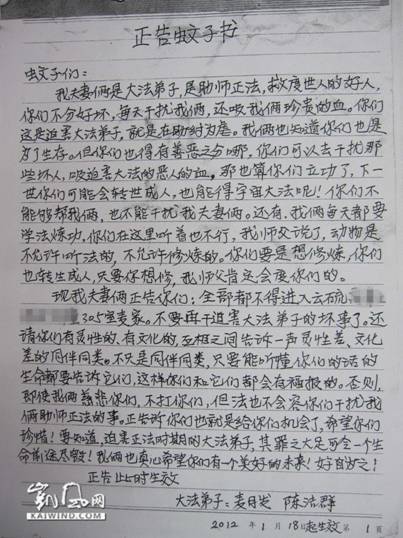 正告蚊子书
蚊子们：
我夫妻俩是大法弟子，是助师正法，救度世人的好人，
你们不分好坏，每天干扰我俩，还吸我俩珍贵的血。你们
这是迫害大法弟子，就是在助纣为虐。我俩也知道你们也是
为了生存。但你们也得有善恶之分哪，你们可以去干扰那
些坏人，吸迫害大法的恶人的血。那也算你们立功了，下一
世你们可能会转世成人，也能得宇宙大法呢！你们不
能够帮我俩，也不能干扰我夫妻俩。还有，我俩每天都要
学法炼功，你们在这里听着也不行，我师父说了，动物是
不允许听法的，不允许修炼的。你们要是想修炼，你们
也转生成人，只要你想修，我师父肯定会度你们的。
现我夫妻俩正告你们：全部都不得进入云硫
305室麦家。不要再干迫害大法弟子的坏事了。还
请你们有灵性的，有文化的，互相之间告诉一声灵性差，文化
差的同伴同类。不只是同伴同类，只要能听懂你们的话的
生命都要告诉它们，这样你们和它们都会有福报的。否则，
即使我俩慈悲你们，不打你们，但法也不会容你们干扰我
俩助师正法的事。正告你们也就是给你们机会了，希望你们
珍惜！要知道，迫害正法时期的大法弟子，其罪之大足可令一个生
命前途尽毁！我俩也真心希望你们有一个美好的未来！好自为之！
正告止此时生效
大法弟子：麦日发 陈洁群
2012年1月18日起生效 第1页
凯风网
KAIWIND.COM